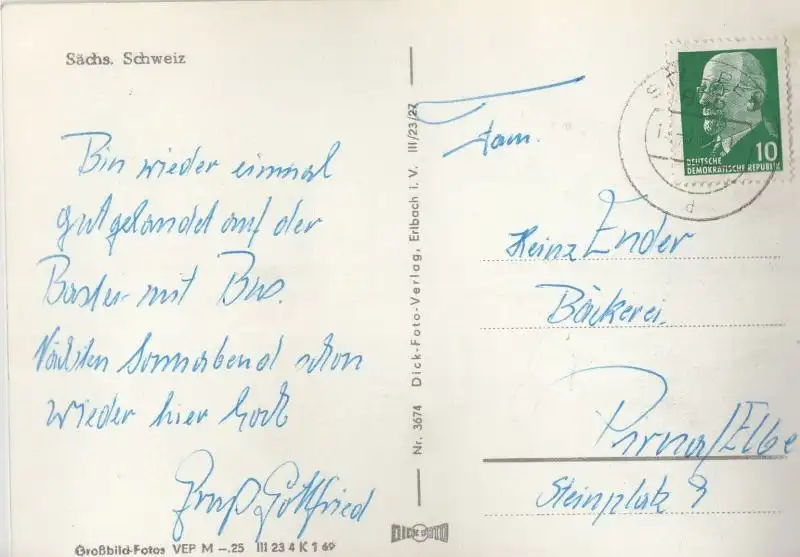 Sächs. Schweiz
Bin wieder einmal
gut gelandet auf der
Bastei mit Bus.
Nächsten Sonnabend schon
wieder hier
Gruß Gottfried
Großbild-Fotos VEP M –.25 III 23 4 K 1 69
Nr. 3674 Dick-Foto-Verlag, Erlbach i. V. III/23/27
DICK FOTO
10
DEUTSCHE
DEMOKRATISCHE REPUBLIK
Fam.
Heinz Ender
Bäckerei
Pirna/Elbe
Steinplatz 9